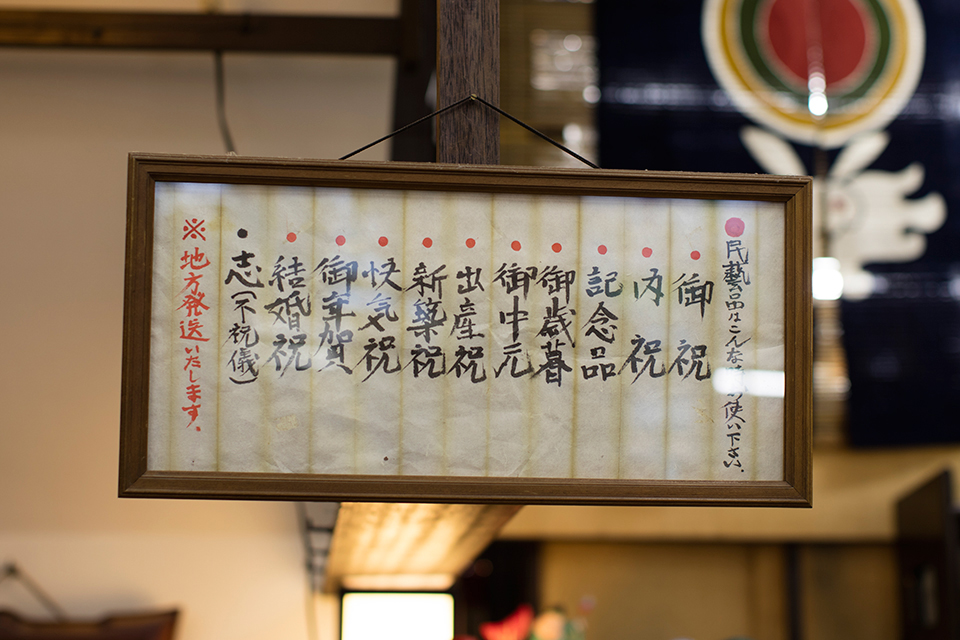 民藝品はこんな 使い下さい.
御祝
内祝
記念品
御歳暮
御中元
出産祝
新築祝
快気祝
御年賀
結婚祝
志(不祝儀)
※地方発送いたします.